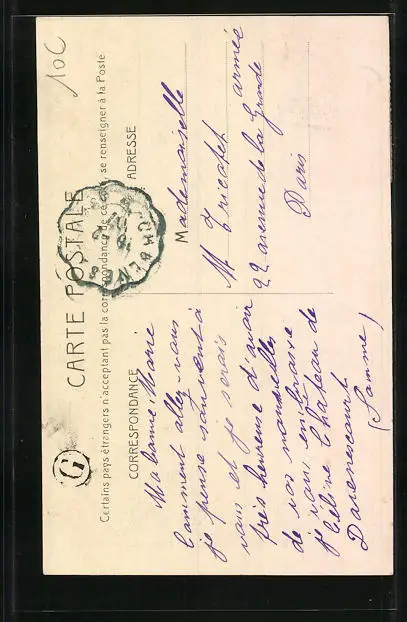 10C
CARTE POSTALE
Certains pays étrangers n'acceptant pas la correspondance de ce se renseigner à la Poste
G
CORRESPONDANCE
Ma bonne Marie
Comment allez-vous
je pense souvent à
vous et je serais
très heureuse d'avoir
de vos nouvelles
je vous embrasse
Céline Château de
Davenescourt
(Somme)
ADRESSE
Mademoiselle
M Tricotet
22 avenue de la Grande armée
Paris